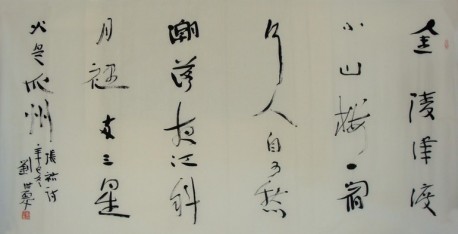 金陵津渡
小山樓一宿
行人自可愁
潮落夜江斜
月裡两三星
火是瓜州
張祜詩
辛巳冬
劉